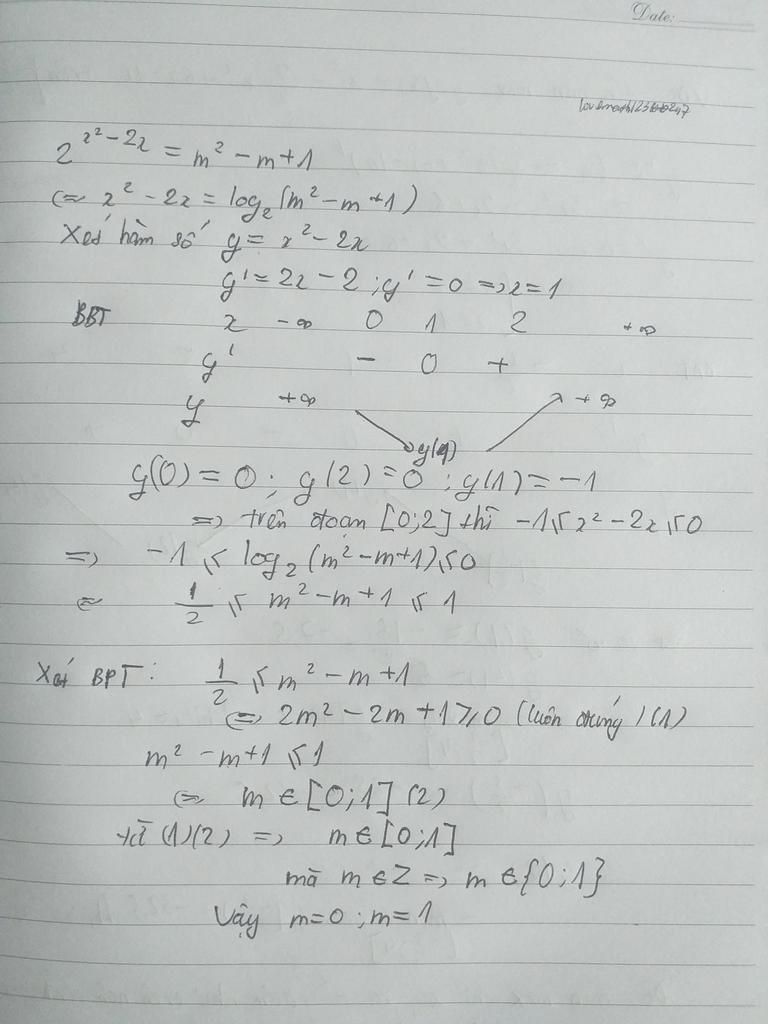 Date:
2^{x²-2x} = m² - m + 1
⇔ x² - 2x = log₂(m² - m + 1)
Xét hàm số y = x² - 2x
y' = 2x - 2 ; y' = 0 => x = 1
BBT x -∞ 0 1 2 +∞
y' - 0 +
y +∞ y(1) +∞
y(0) = 0 ; y(2) = 0 ; y(1) = -1
=> trên đoạn [0;2] thì -1 ≤ x² - 2x ≤ 0
=> -1 ≤ log₂(m² - m + 1) ≤ 0
⇔ 1/2 ≤ m² - m + 1 ≤ 1
Xét BPT : 1/2 ≤ m² - m + 1
⇔ 2m² - 2m + 1 ≥ 0 (luôn đúng) (1)
m² - m + 1 ≤ 1
⇔ m ∈ [0;1] (2)
từ (1)(2) => m ∈ [0;1]
mà m ∈ Z => m ∈ {0;1}
Vậy m = 0 ; m = 1